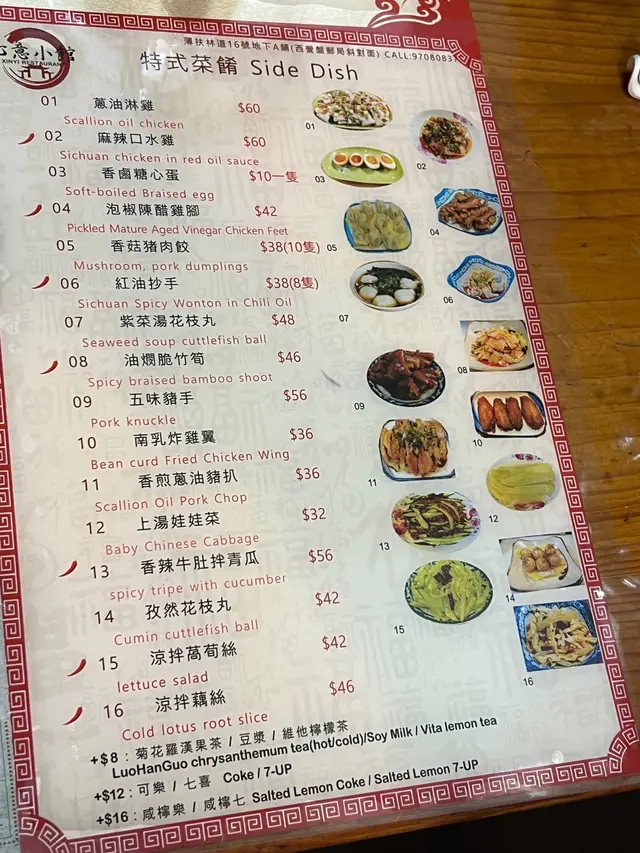 薄扶林道16號地下A鋪(西營盤郵局斜對面) CALL:9708083
意小館
XINYI RESTAURANT
特式菜餚 Side Dish
01 蔥油淋雞 $60
Scallion oil chicken
02 麻辣口水雞 $60
Sichuan chicken in red oil sauce
03 香鹵糖心蛋 $10一隻
Soft-boiled Braised egg
04 泡椒陳醋雞腳 $42
Pickled Mature Aged Vinegar Chicken Feet
05 香菇猪肉餃 $38(10隻)
Mushroom, pork dumplings
06 紅油抄手 $38(8隻)
Sichuan Spicy Wonton in Chili Oil
07 紫菜湯花枝丸 $48
Seaweed soup cuttlefish ball
08 油燜脆竹筍 $46
Spicy braised bamboo shoot
09 五味豬手 $56
Pork knuckle
10 南乳炸雞翼 $36
Bean curd Fried Chicken Wing
11 香煎蔥油豬扒 $36
Scallion Oil Pork Chop
12 上湯娃娃菜 $32
Baby Chinese Cabbage
13 香辣牛肚拌青瓜 $56
spicy tripe with cucumber
14 孜然花枝丸 $42
Cumin cuttlefish ball
15 涼拌萵筍絲 $42
lettuce salad
16 涼拌藕絲 $46
Cold lotus root slice
+$8：菊花羅漢果茶 / 豆漿 / 維他檸檬茶
LuoHanGuo chrysanthemum tea(hot/cold)/Soy Milk / Vita lemon tea
+$12：可樂 / 七喜 Coke / 7-UP
+$16：咸檸樂 / 咸檸七 Salted Lemon Coke / Salted Lemon 7-UP
01
02
03
04
05
06
07
08
09
10
11
12
13
14
15
16